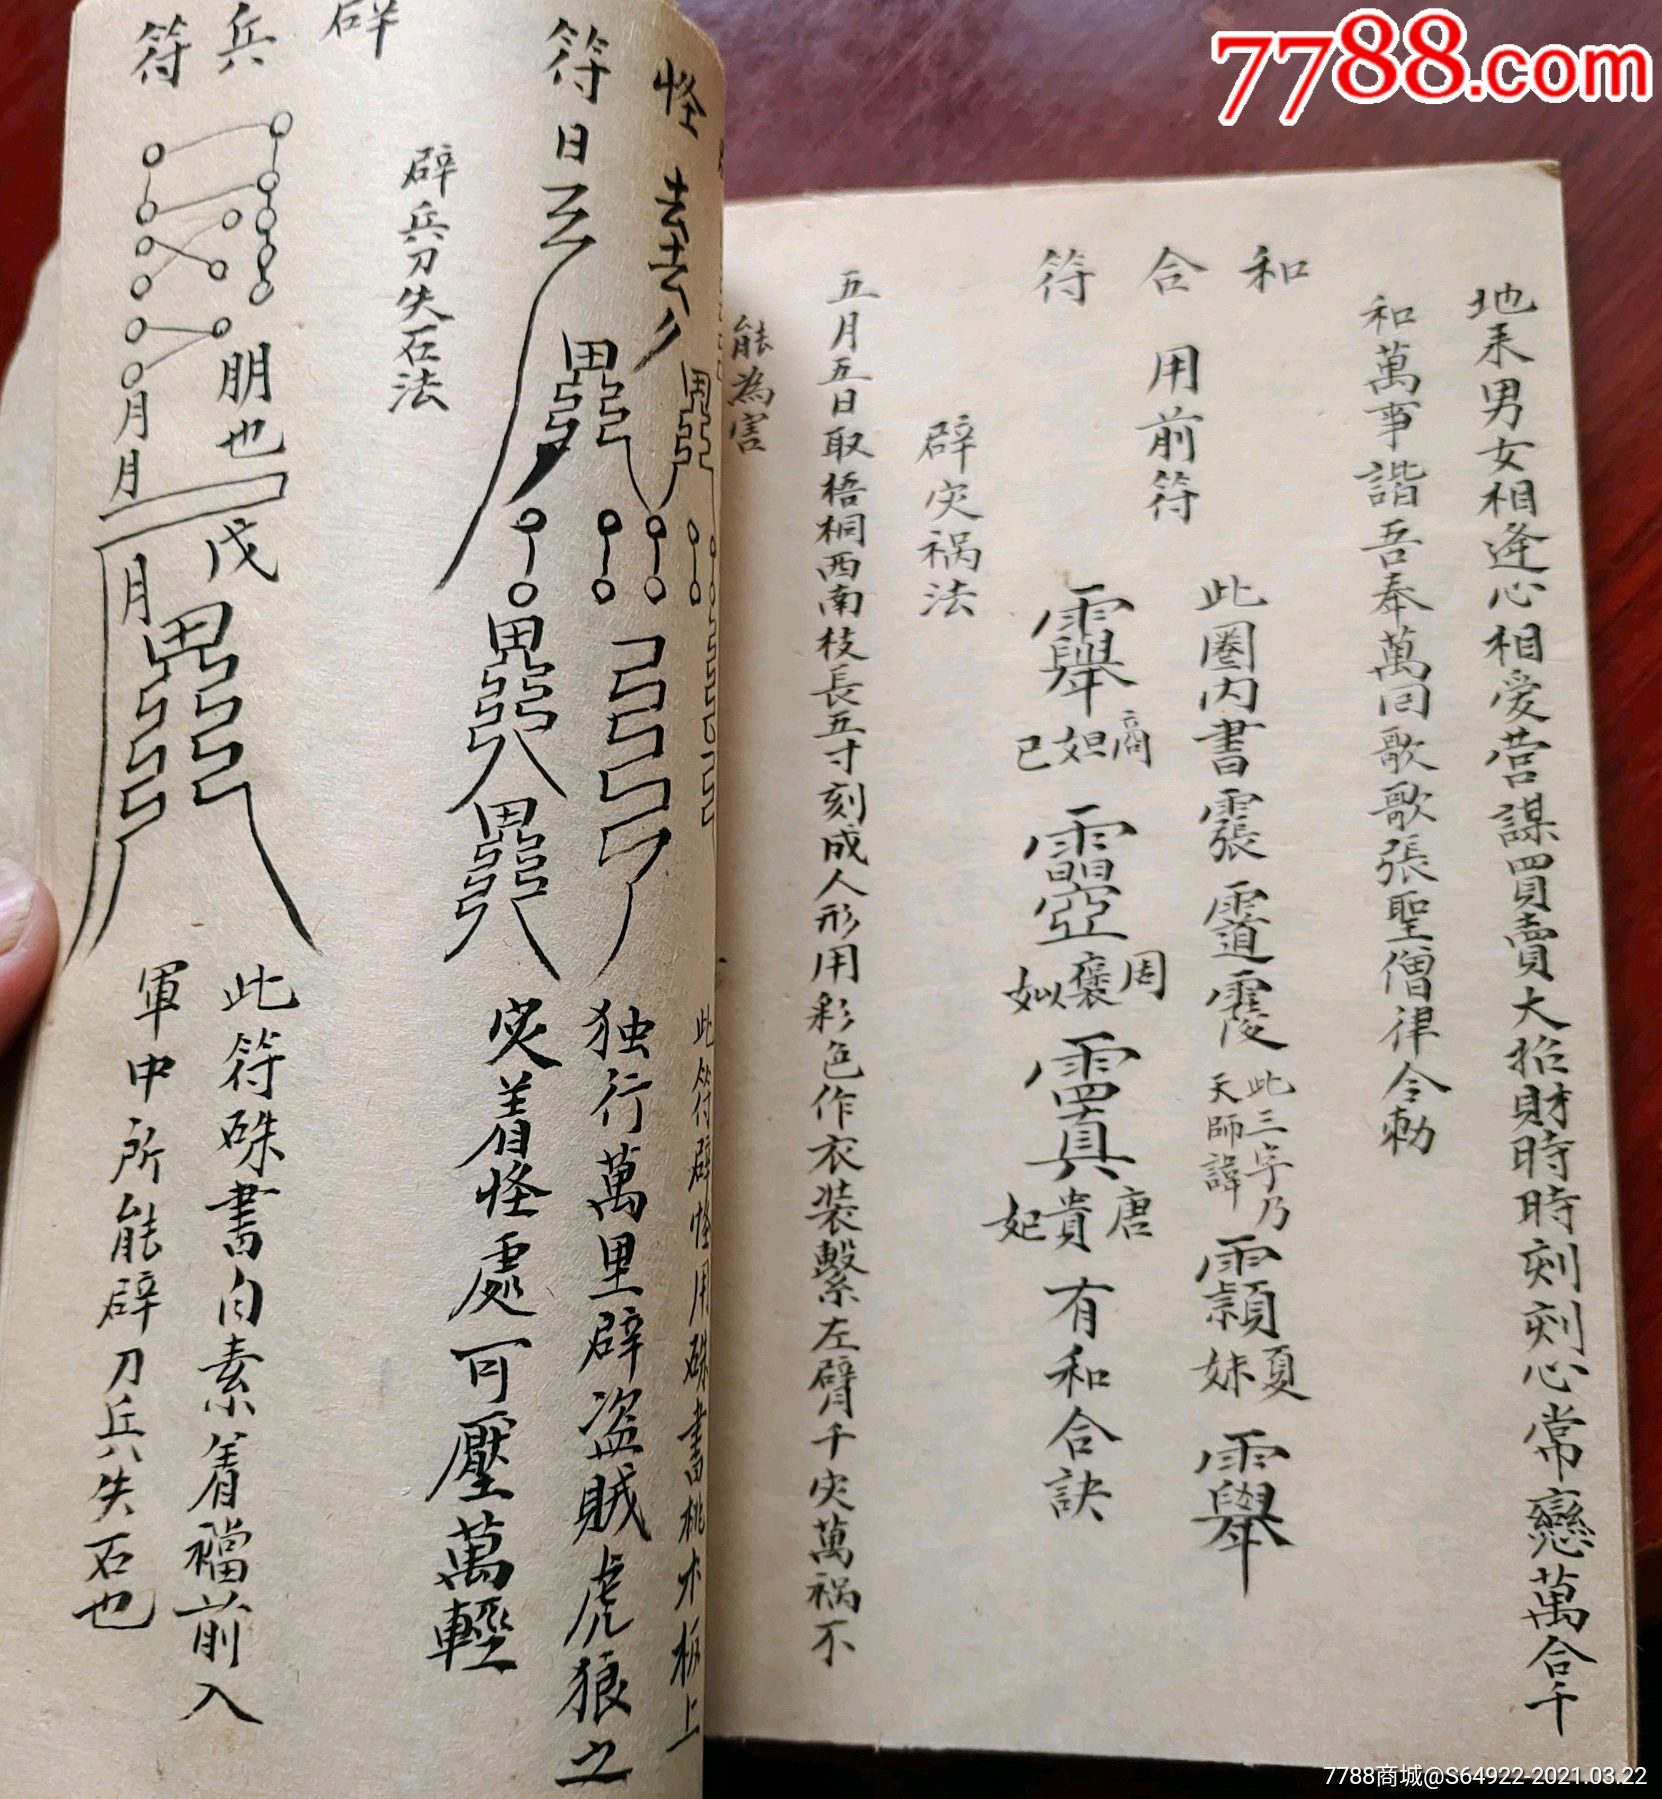 7788.com
地来男女相逢心相爱营謀買賣大招財時時刻刻心常戀萬合千
和萬事諧吾奉萬回歌歌張聖僧律令勅
和合符
用前符
此圈内書
此三字乃
天師諱
夏
妹
商
妲
己
周
褒
姒
唐
貴
妃
有和合訣
辟灾祸法
五月五日取梧桐西南枝長五寸刻成人形用彩色作衣装繫左臂千灾萬祸不
能為害
怪
符
日
此符辟怪用硃書桃木板上
独行萬里辟盗賊虎狼之
灾着怪處可壓萬輕
辟兵刀失石法
辟兵符
朋也
月
月
戊
月
此符硃書白素着襠前入
軍中所能辟刀兵失石也
7788商城@S64922-2021.03.22